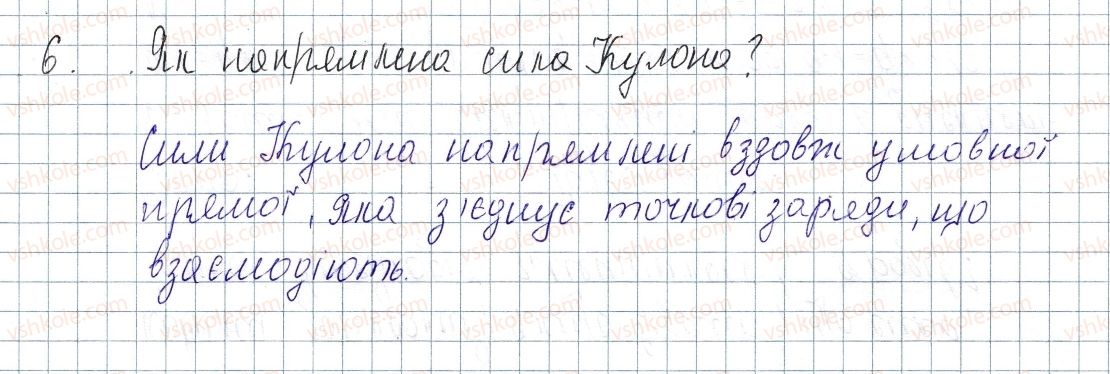 6. Як напрямлена сила Кулона?
Сили Кулона напрямлені вздовж умовної
прямої, яка з'єднує точкові заряди, що
взаємодіють.